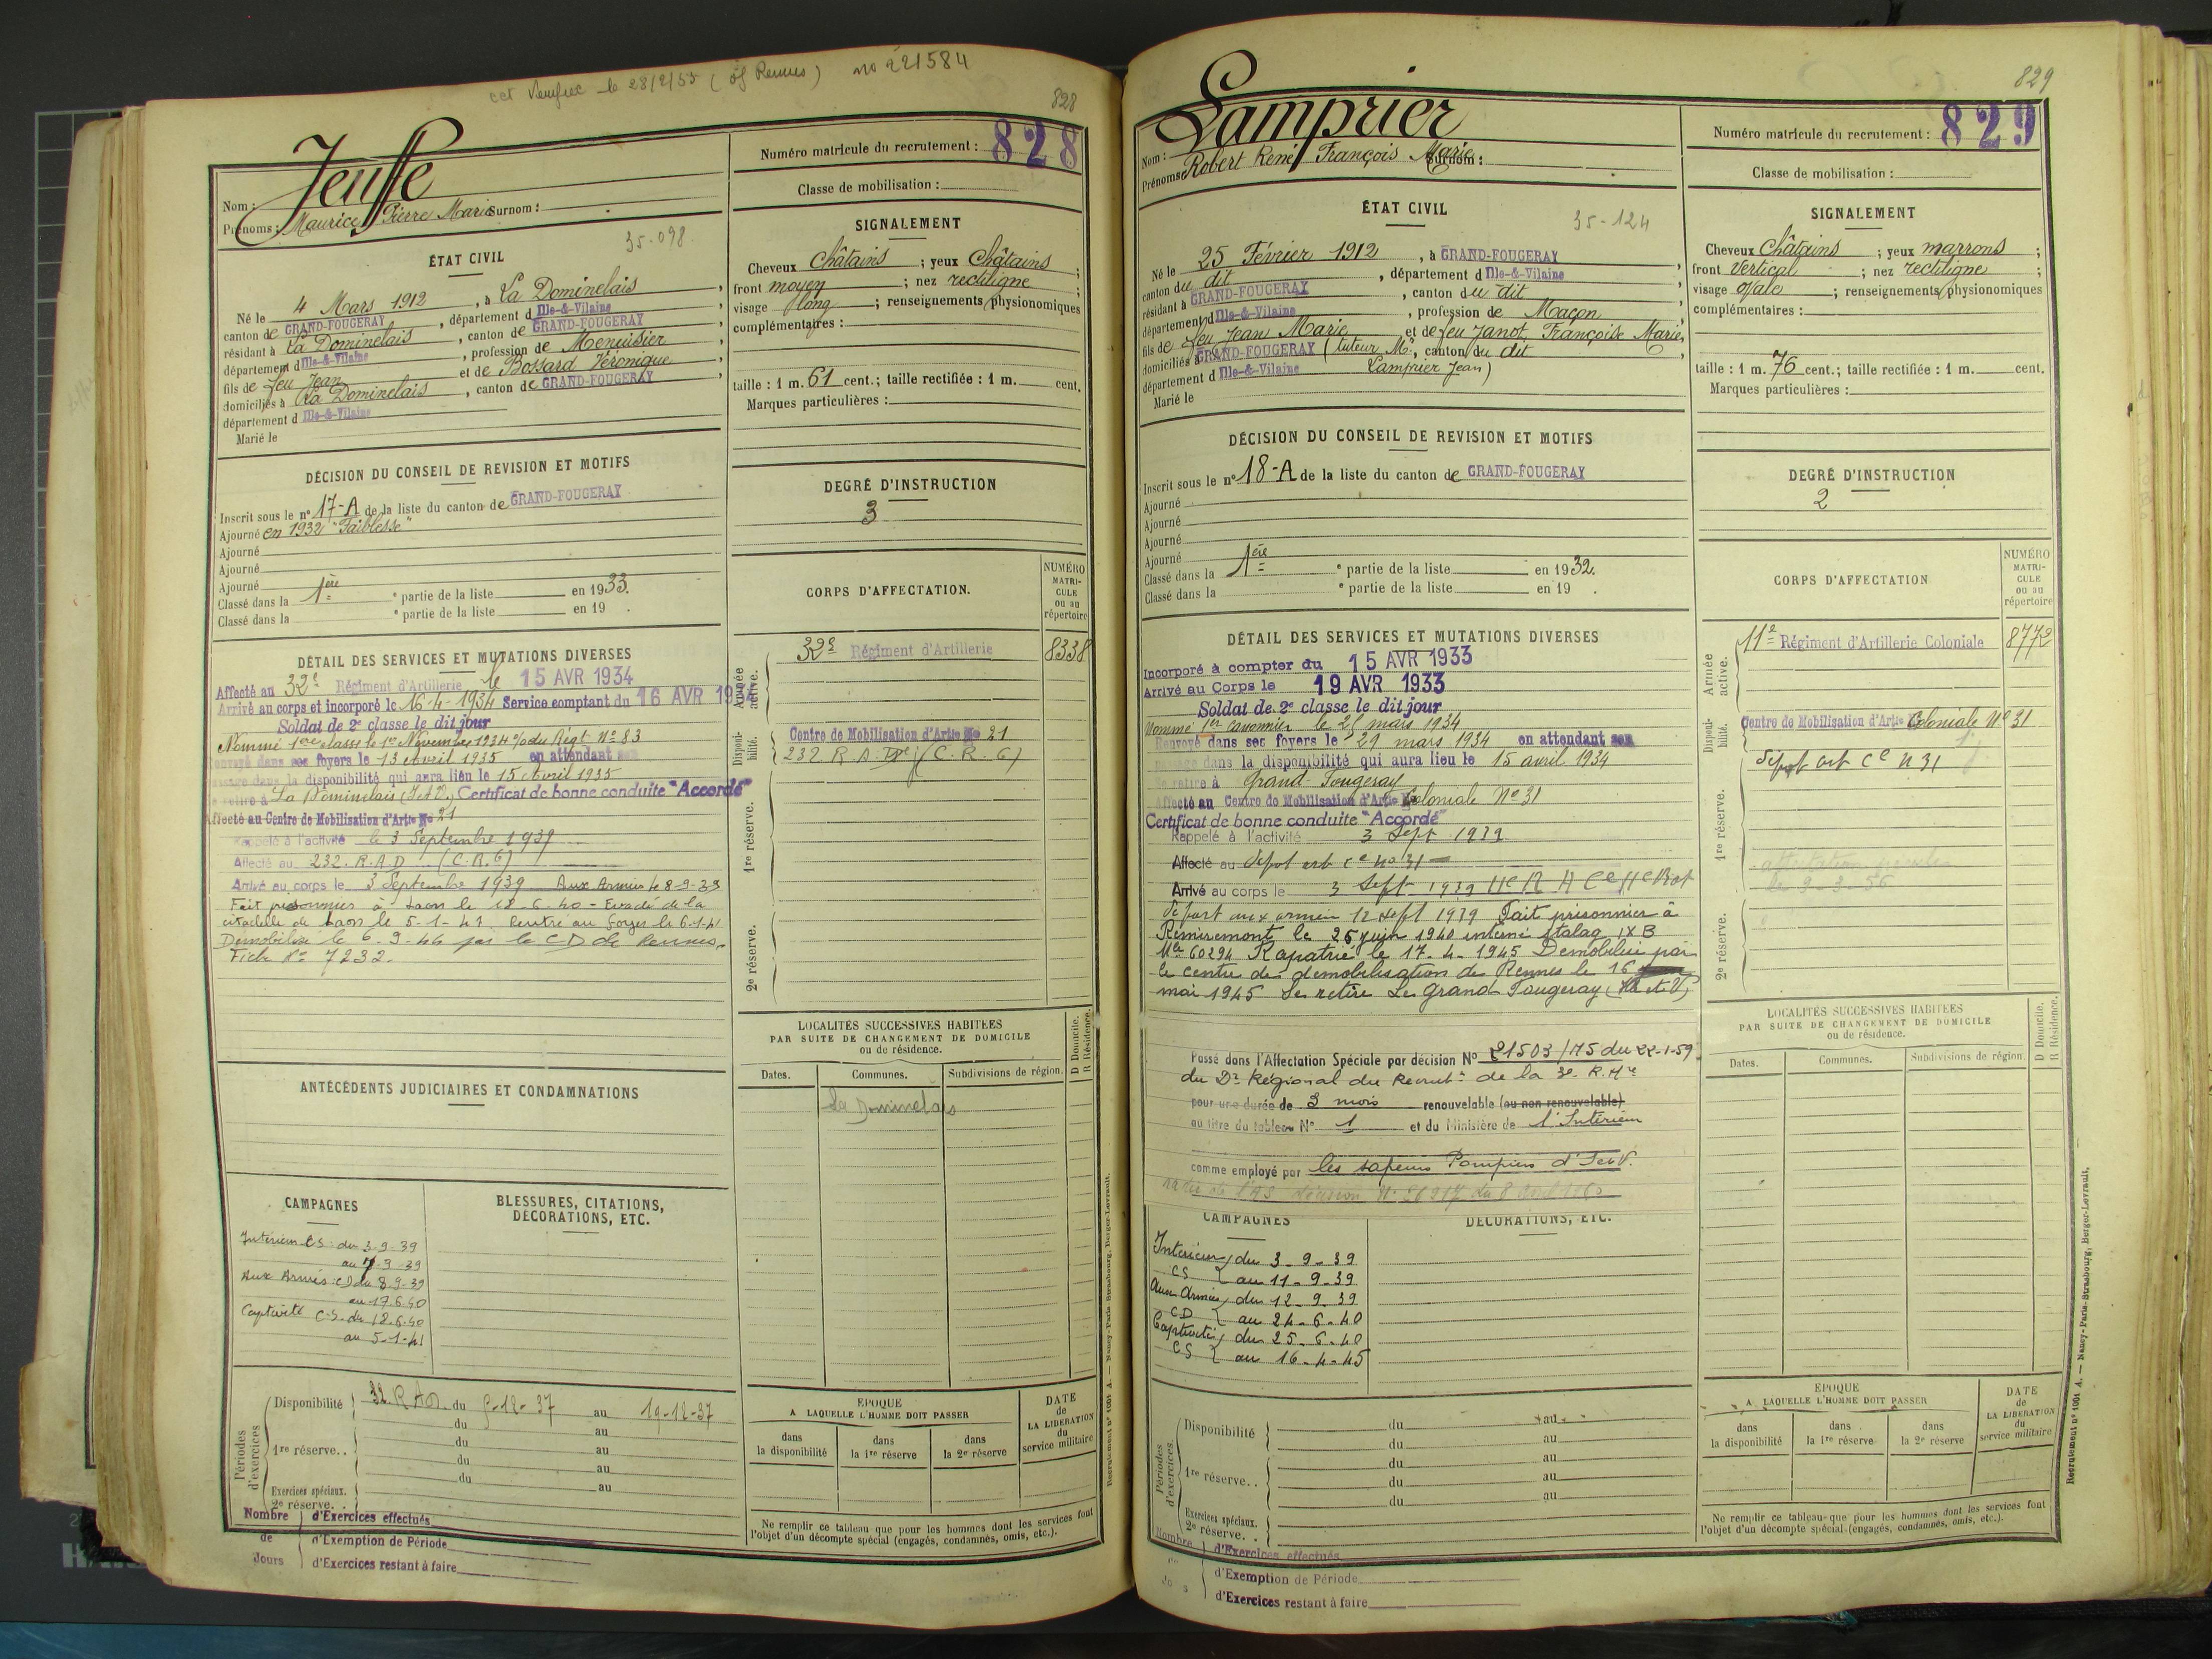 cet Verifiée le 28/2/55 (of Rennes) no 221584
828
Jeusse
Nom :
Prénoms : Maurice Pierre Marie Surnom :
Numéro matricule du recrutement : 828
Classe de mobilisation :
ÉTAT CIVIL
35-098
Né le 4 Mars 1912, à La Dominelais,
canton de GRAND-FOUGERAY, département d Ille-&-Vilaine
résidant à La Dominelais, canton de GRAND-FOUGERAY
département d Ille-&-Vilaine, profession de Menuisier
fils de feu Jean et de Bossard Véronique
domiciliés à La Dominelais, canton de GRAND-FOUGERAY
département d Ille-&-Vilaine
Marié le
SIGNALEMENT
Cheveux Châtains ; yeux Châtains ;
front moyen ; nez rectiligne ;
visage long ; renseignements physionomiques
complémentaires :
taille : 1 m. 61 cent.; taille rectifiée : 1 m. cent.
Marques particulières :
DÉCISION DU CONSEIL DE REVISION ET MOTIFS
Inscrit sous le n° 17-A de la liste du canton de GRAND-FOUGERAY
Ajourné en 1932 "Faiblesse"
Ajourné
Ajourné
Ajourné
Classé dans la 1ère e partie de la liste en 1933.
Classé dans la e partie de la liste en 19 .
DEGRÉ D'INSTRUCTION
3
DÉTAIL DES SERVICES ET MUTATIONS DIVERSES
Affecté au 32e Régiment d'Artillerie le 15 AVR 1934
Arrivé au corps et incorporé le 16-4-1934 Service comptant du 16 AVR 1934
Soldat de 2e classe le dit jour
Nommé 1ere classe le 1er Novembre 1934 % du Régt N° 83
Renvoyé dans ses foyers le 13 Avril 1935 en attendant son
passage dans la disponibilité qui aura lieu le 15 Avril 1935
Se retire à La Dominelais (I et V.) Certificat de bonne conduite "Accordé"
Affecté au Centre de Mobilisation d'Artie No 21
Rappelé à l'activité le 3 Septembre 1939
Affecté au 232. R.A.D (C.R.6)
Arrivé au corps le 3 Septembre 1939 Aux Armées le 8-9-39
Fait prisonnier à Laon le 18-6-40 - Evadé de la
citadelle de Laon le 5-1-41 Rentré au foyer le 6-1-41
Démobilisé le 6-9-44 par le CD de Rennes.
Fiche N° 7232.
CORPS D'AFFECTATION.
NUMÉRO MATRICULE ou au répertoire
Armée active.
32e Régiment d'Artillerie 8338
Disponibilité.
Centre de Mobilisation d'Artie No 21
232 R A (C. R. 6)
1re réserve.
2e réserve.
ANTÉCÉDENTS JUDICIAIRES ET CONDAMNATIONS
LOCALITÉS SUCCESSIVES HABITÉES
PAR SUITE DE CHANGEMENT DE DOMICILE
ou de résidence.
D Domicile.
R Résidence.
Dates. Communes. Subdivisions de région.
La Dominelais
CAMPAGNES
Intérieur CS : du 3-9-39
au 7-9-39
Aux Armées : CD du 8-9-39
au 17-6-40
Captivité C.S. du 18-6-40
au 5-1-41
BLESSURES, CITATIONS,
DÉCORATIONS, ETC.
Périodes d'exercices
Disponibilité 32 RAD. du 9-12-37 au 19-12-37
du au
1re réserve.. du au
du au
Exercices spéciaux. du au
2e réserve. .
Nombre de Jours
d'Exercices effectués
d'Exemption de Période
d'Exercices restant à faire
ÉPOQUE
A LAQUELLE L'HOMME DOIT PASSER
dans la disponibilité
dans la 1re réserve
dans la 2e réserve
DATE de LA LIBÉRATION du service militaire
Ne remplir ce tableau que pour les hommes dont les services font
l'objet d'un décompte spécial (engagés, condamnés, omis, etc.).
Recrutement N° 1001 A. — Nancy-Paris-Strasbourg, Berger-Levrault.
829
Lamprier
Nom :
Prénoms Robert René François Marie Surnom :
Numéro matricule du recrutement : 829
Classe de mobilisation :
ÉTAT CIVIL
35-124
Né le 25 Février 1912, à GRAND-FOUGERAY,
canton du dit, département d Ille-&-Vilaine
résidant à GRAND-FOUGERAY, canton du dit
département d Ille-&-Vilaine, profession de Maçon
fils de feu Jean Marie et de feu Janot, Françoise Marie,
domiciliés à GRAND-FOUGERAY (tuteur Mr, canton du dit
département d Ille-&-Vilaine Lamprier Jean)
Marié le
SIGNALEMENT
Cheveux Châtains ; yeux marrons ;
front Vertical ; nez rectiligne ;
visage ovale ; renseignements physionomiques
complémentaires :
taille : 1 m. 76 cent.; taille rectifiée : 1 m. cent.
Marques particulières :
DÉCISION DU CONSEIL DE REVISION ET MOTIFS
Inscrit sous le n° 18-A de la liste du canton de GRAND-FOUGERAY
Ajourné
Ajourné
Ajourné
Ajourné
Classé dans la 1ère e partie de la liste en 1932.
Classé dans la e partie de la liste en 19 .
DEGRÉ D'INSTRUCTION
2
DÉTAIL DES SERVICES ET MUTATIONS DIVERSES
Incorporé à compter du 15 AVR 1933
Arrivé au Corps le 19 AVR 1933
Soldat de 2e classe le dit jour
Nommé 1er canonnier le 21 mars 1934
Renvoyé dans ses foyers le 29 mars 1934 en attendant son
passage dans la disponibilité qui aura lieu le 15 avril 1934
Se retire à Grand Fougeray
Affecté au Centre de Mobilisation d'Artie Coloniale N° 31
Certificat de bonne conduite "Accordé"
Rappelé à l'activité 3 Sept 1939
Affecté au dépot art ce No 31
Arrivé au corps le 3 Sept 1939
départ aux armées 12 sept 1939 Fait prisonnier à
Remiremont le 25 juin 1940 interné stalag IX B
Mle 60294 Rapatrié le 17-4-1945 Démobilisé par
le centre de démobilisation de Rennes le 16
mai 1945 Se retire Le grand Fougeray (Ille et V)
Passé dans l'Affectation Spéciale par décision N° 21503/175 du 22-1-59
du Dr Régional du Recrutt de la 3e. R. Mre
pour une durée de 3 mois renouvelable (ou non renouvelable)
au titre du tableau N° 1 et du Ministère de l'Intérieur
comme employé par les sapeurs Pompiers d'I et V.
radié de l'AS décision N° 26917 du 8
CORPS D'AFFECTATION
NUMÉRO MATRICULE ou au répertoire
Armée active.
11e Régiment d'Artillerie Coloniale 8772
Disponibilité.
Centre de Mobilisation d'Artie Coloniale N° 31
Dépot art Ce N 31
1re réserve.
le 9-3-56
2e réserve.
LOCALITÉS SUCCESSIVES HABITÉES
PAR SUITE DE CHANGEMENT DE DOMICILE
ou de résidence.
D Domicile.
R Résidence.
Dates. Communes. Subdivisions de région.
CAMPAGNES
Intérieur du 3-9-39
CS au 11-9-39
Aux Armées du 12-9-39
CD au 24-6-40
Captivité du 25-6-40
CS au 16-4-45
DÉCORATIONS, ETC.
Périodes d'exercices.
Disponibilité du au
du au
1re réserve.. du au
du au
du au
Exercices spéciaux.
2e réserve. .
Nombre
d'Exercices effectués
d'Exemption de Période
d'Exercices restant à faire
ÉPOQUE
A LAQUELLE L'HOMME DOIT PASSER
dans la disponibilité
dans la 1re réserve
dans la 2e réserve
DATE de LA LIBÉRATION du service militaire
Ne remplir ce tableau que pour les hommes dont les services font
l'objet d'un décompte spécial (engagés, condamnés, omis, etc.).
Recrutement N° 1001 A. — Nancy-Paris-Strasbourg, Berger-Levrault.